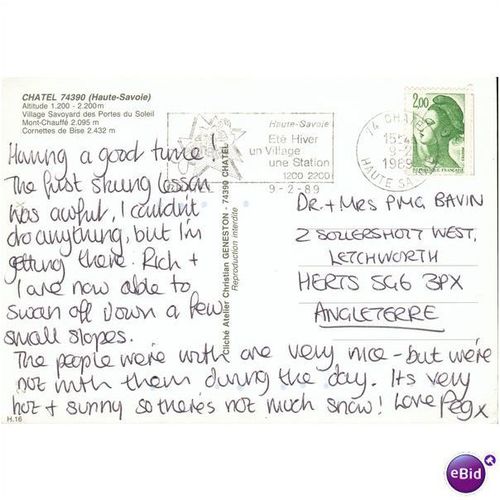 CHATEL 74390 (Haute-Savoie)
Altitude 1.200 - 2.200 m
Village Savoyard des Portes du Soleil
Mont-Chauffé 2.095 m
Cornettes de Bise 2.432 m
Having a good time!
The first skiing lesson
was awful, I couldn't
do anything, but I'm
getting there. Rich +
I are now able to
swan off down a few
small slopes.
The people we're with are very nice - but we're
not with them during the day. Its very
hot + sunny so there's not much snow! Love Peg x
H.16
Cliché Atelier Christian GENESTON - 74390 CHATEL
Reproduction interdite
Haute-Savoie
Eté Hiver
un Village
une Station
1200 2200
9-2-89
74 CHATEL
15H
9-2
1989
HAUTE SA
2,00
REPUBLIQUE FRANÇAISE
DR. + MRS PMG BAVIN
2 SOLLERSHOTT WEST,
LETCHWORTH
HERTS SG6 3PX
ANGLETERRE
eBid